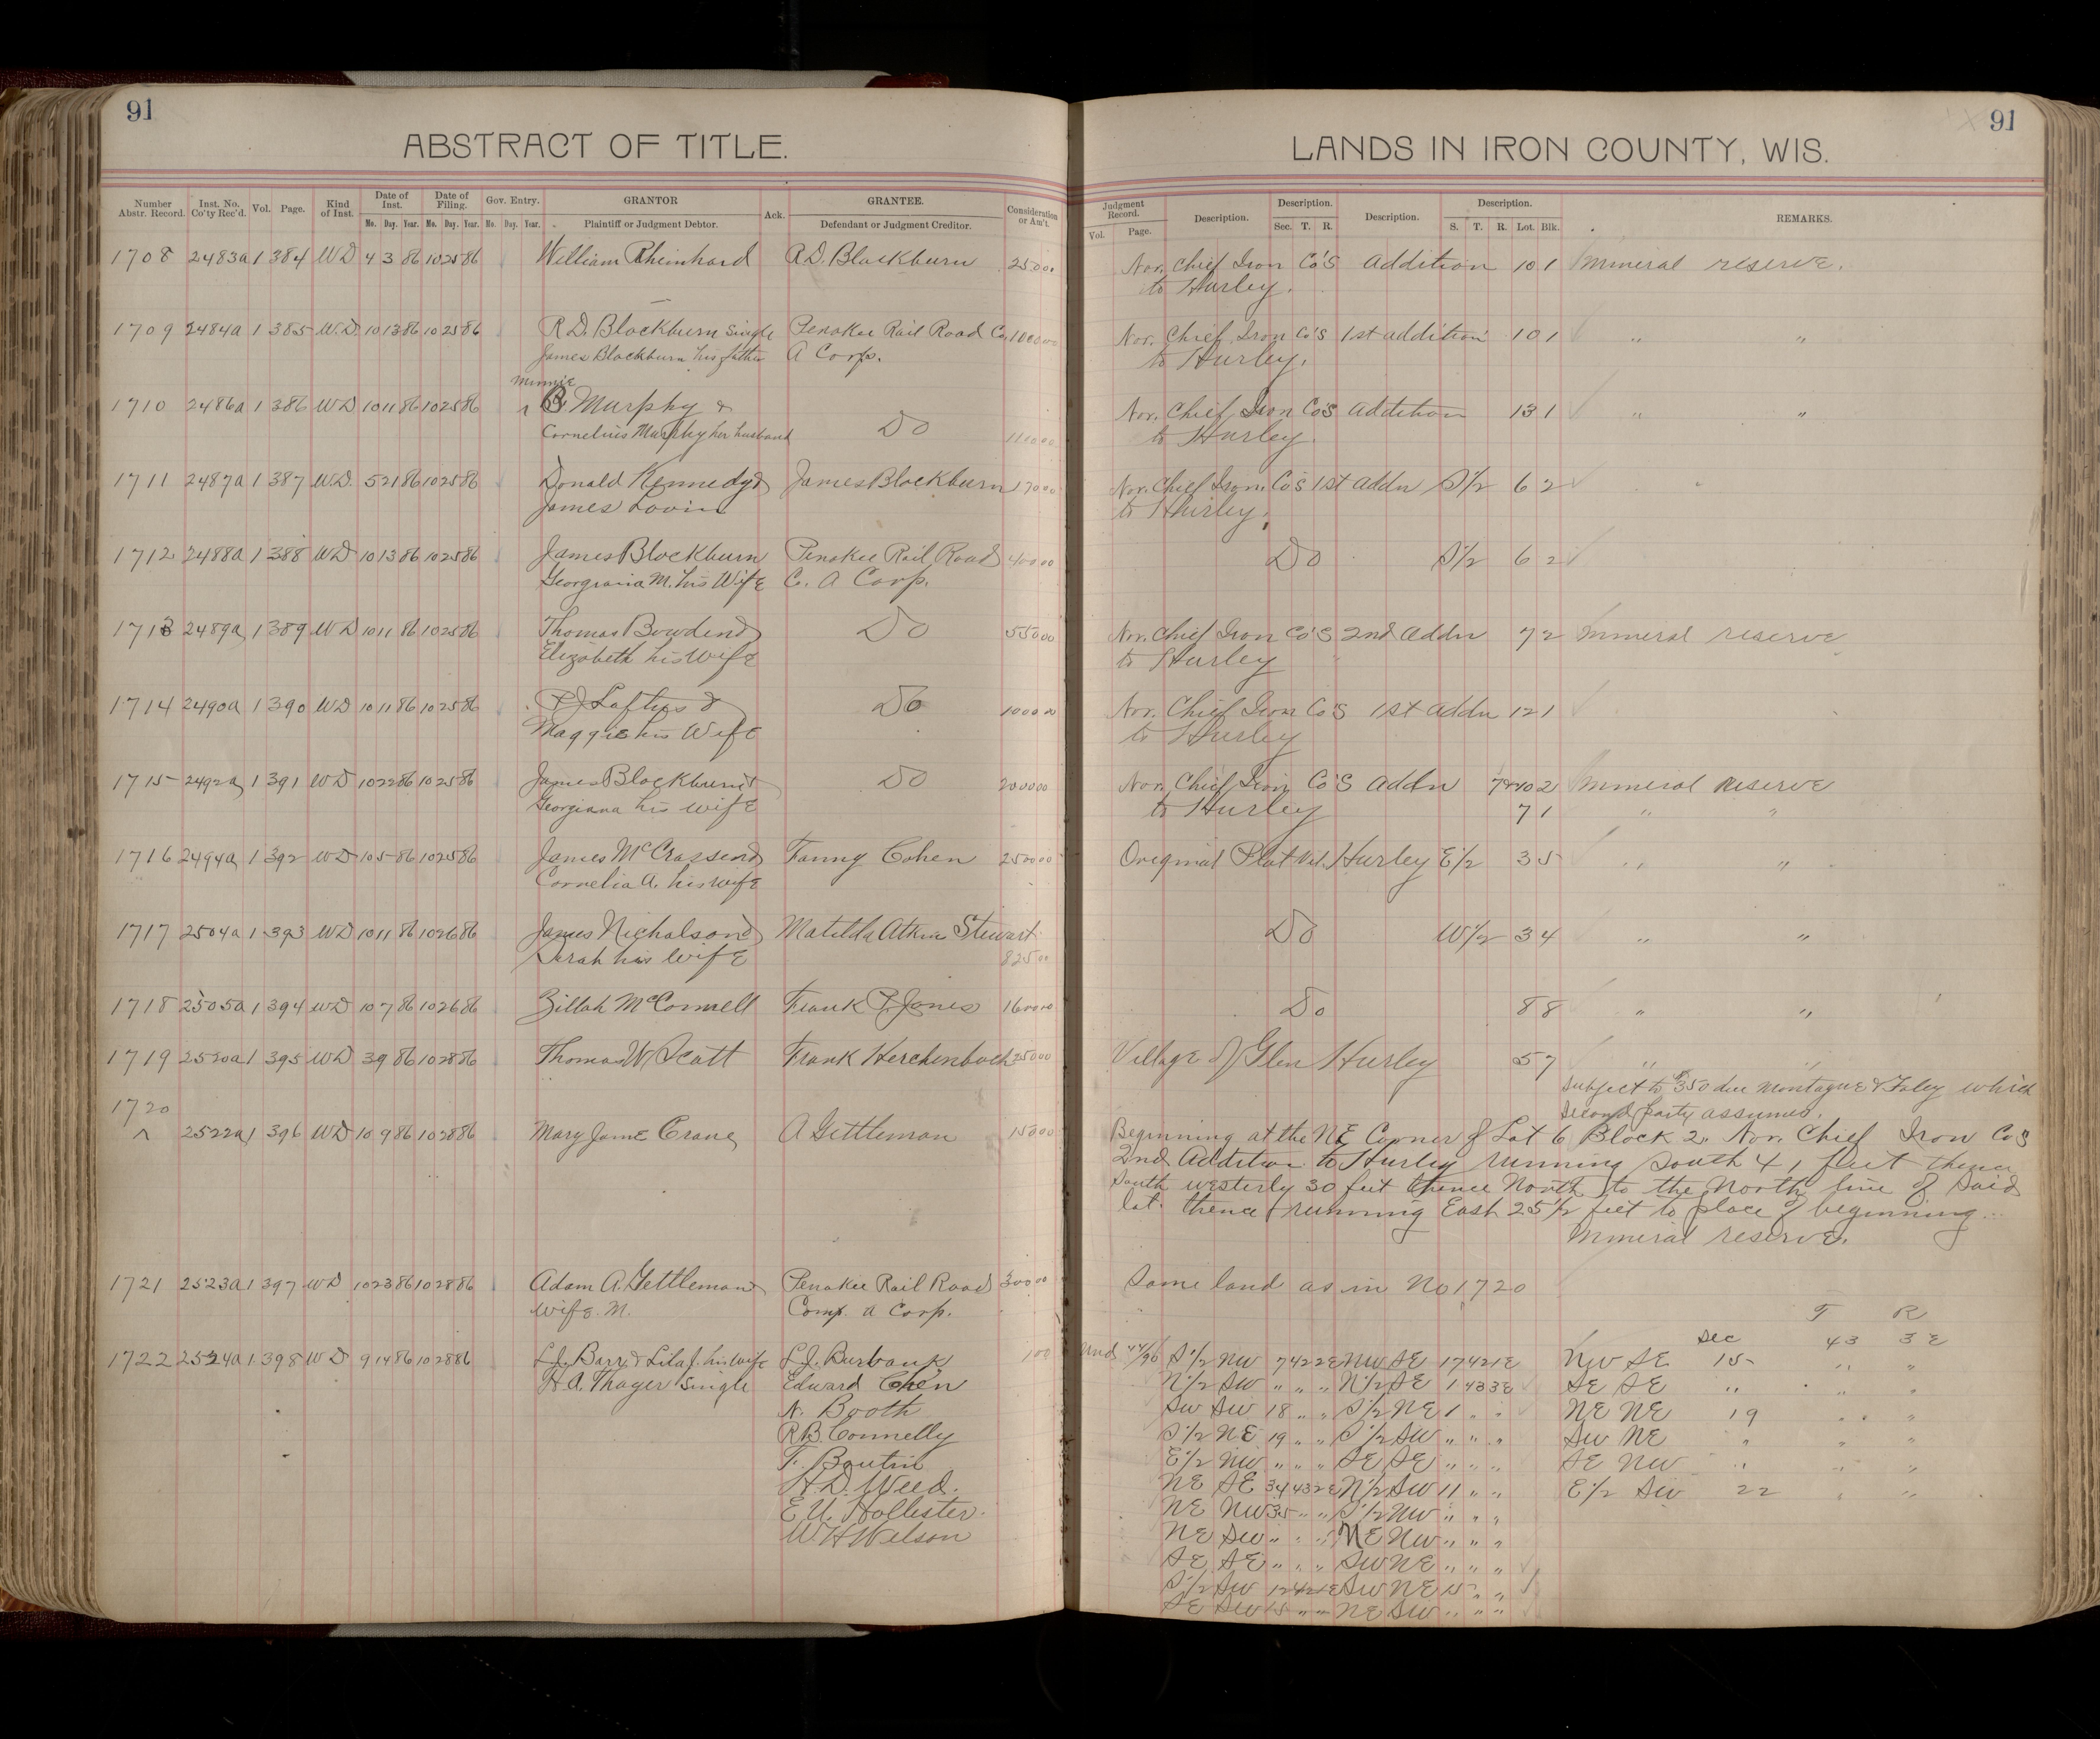 91
ABSTRACT OF TITLE.
Number Abstr. Record. Inst. No. Co'ty Rec'd. Vol. Page. Kind of Inst. Date of Inst. Date of Filing. Gov. Entry. GRANTOR Ack. GRANTEE. Consideration or Am't.
Mo. Day. Year. Mo. Day. Year. Mo. Day. Year. Plaintiff or Judgment Debtor. Defendant or Judgment Creditor.
1708 2483a 1 384 WD 4 3 86 10 25 86 William Rheinhard R.D. Blackburn 250 00
1709 2484a 1 385 W.D. 10 13 86 10 25 86 R.D. Blackburn Single Penokee Rail Road Co 1000 00
James Blackburn his father A Corp.
Minnie
1710 2486a 1 386 WD 10 11 86 10 25 86 B. Murphy & Do
Cornelius Murphy her husband
1711 2487a 1 387 WD. 5 21 86 10 25 86 Donald Kennedy & James Blackburn 170 00
James Lovin
1712 2488a 1 388 WD 10 13 86 10 25 86 James Blackburn Penokee Rail Road 400 00
Georgiania M. his Wife C. A Corp.
1713 2489a 1 389 WD 10 11 86 10 25 86 Thomas Bowden & Do 550 00
Elizabeth his Wife
1714 2490a 1 390 WD 10 11 86 10 25 86 P.J. Loftus & Do 100 00
Maggie his Wife
1715 2492a 1 391 WD 10 22 86 10 25 86 James Blackburn & Do 2000 00
Georgiana his wife
1716 2494a 1 392 WD 10 5 86 10 25 86 James McCrossen & Fanny Cohen 2500 00
Cornelia A. his wife
1717 2504a 1 393 WD 10 11 86 10 26 86 James Nicholson & Matilda Atkin Stewart
Sarah his Wife 825 00
1718 2505a 1 394 WD 10 7 86 10 26 86 Zillah McConnell Frank P. Jones 1600 00
1719 2520a 1 395 WD 3 9 86 10 28 86 Thomas W Scott Frank Herchenbach 250 00
1720
^ 2522a 1 396 WD 10 9 86 10 28 86 Mary Jane Crane A Gettleman 150 00
1721 2523a 1 397 WD 10 23 86 10 28 86 Adam A. Gettleman & Penokee Rail Road 300 00
wife. M. Comp. a Corp.
1722 2524a 1 398 WD 9 14 86 10 28 86 L.J. Barr & Lila J. his wife L.J. Burbank 1 00
H.A. Thayer Single Edward Chen
N. Booth
R.B. Connelly
F. Boutin
H.D. Weed.
E U. Hollister.
W H Welson
91
LANDS IN IRON COUNTY, WIS.
Judgment Record. Description. Description. Description. Description. REMARKS.
Vol. Page. Sec. T. R. S. T. R. Lot. Blk.
Nor. Chief Iron Co's Addition 10 1 Mineral reserve.
to Hurley.
Nor. Chief Iron Co's 1st addition 10 1 " "
to Hurley.
Nor. Chief Iron Co's Addition 13 1 " "
to Hurley.
Nor. Chief Iron Co's 1st Addn S1/2 6 2 "
to Hurley.
Do S1/2 6 2
Nor. Chief Iron Co's 2nd Addn 7 2 Mineral reserve
to Hurley
Nor. Chief Iron Co's 1st Addn 12 1
to Hurley
Nor. Chief Iron Co's Addn 7&10 2 Mineral Reserve
to Hurley 7 1 " "
Original Plat Vil. Hurley E1/2 3 5 " "
Do W1/2 3 4 " "
Do 8 8 " "
Village of Glen Hurley 5 7 " "
Subject to $350 due Montague & Foley which
Second party assumes.
Beginning at the NE Corner of Lot 6 Block 2. Nor. Chief Iron Co's
2nd Addition to Hurley running South 41 feet thence
South westerly 30 feet thence North to the North line of said
lot. thence running East 25 1/2 feet to place of beginning.
Mineral reserve.
Same land as in No 1720
T R
Sec 43 3 E
Und S1/2 NW 7 42 2E NW SE 17 42 1E NW SE 15 " "
N1/2 SW " " " N1/2 SE 1 43 3E SE SE " " "
SW SW 18 " " S1/2 NE 1 " " NE NE 19 " "
S1/2 NE 19 " " S1/2 SW " " " SW NE " " "
E1/2 NW " " " SE SE " " " SE NW " " "
NE SE 34 43 2E N1/2 SW 11 " " E1/2 SW 22 " "
NE NW 35 " " S1/2 NW " " "
NE SW " " " NE NW " " "
SE SE " " " SW NE " " "
S1/2 SW 12 42 1E SW NE 15 " "
SE SW 15 " " NE SW " " "